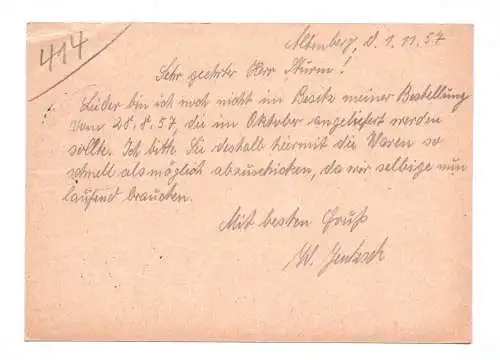 414
Altenberg, d. 1.11.57
Sehr geehrter Herr Sturm!
Leider bin ich noch nicht im Besitz meiner Bestellung
vom 28.8.57, die im Oktober angeliefert werden
sollte. Ich bitte Sie deshalb hiermit die Waren so
schnell als möglich abzuschicken, da wir selbige nun
laufend brauchen.
Mit besten Gruß
W. Jentzsch